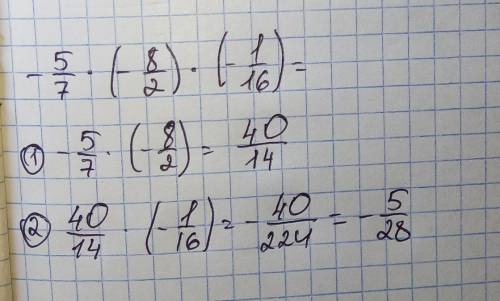 -5/7 · (-8/2) · (-1/16) =
① -5/7 · (-8/2) = 40/14
② 40/14 · (-1/16) = -40/224 = -5/28